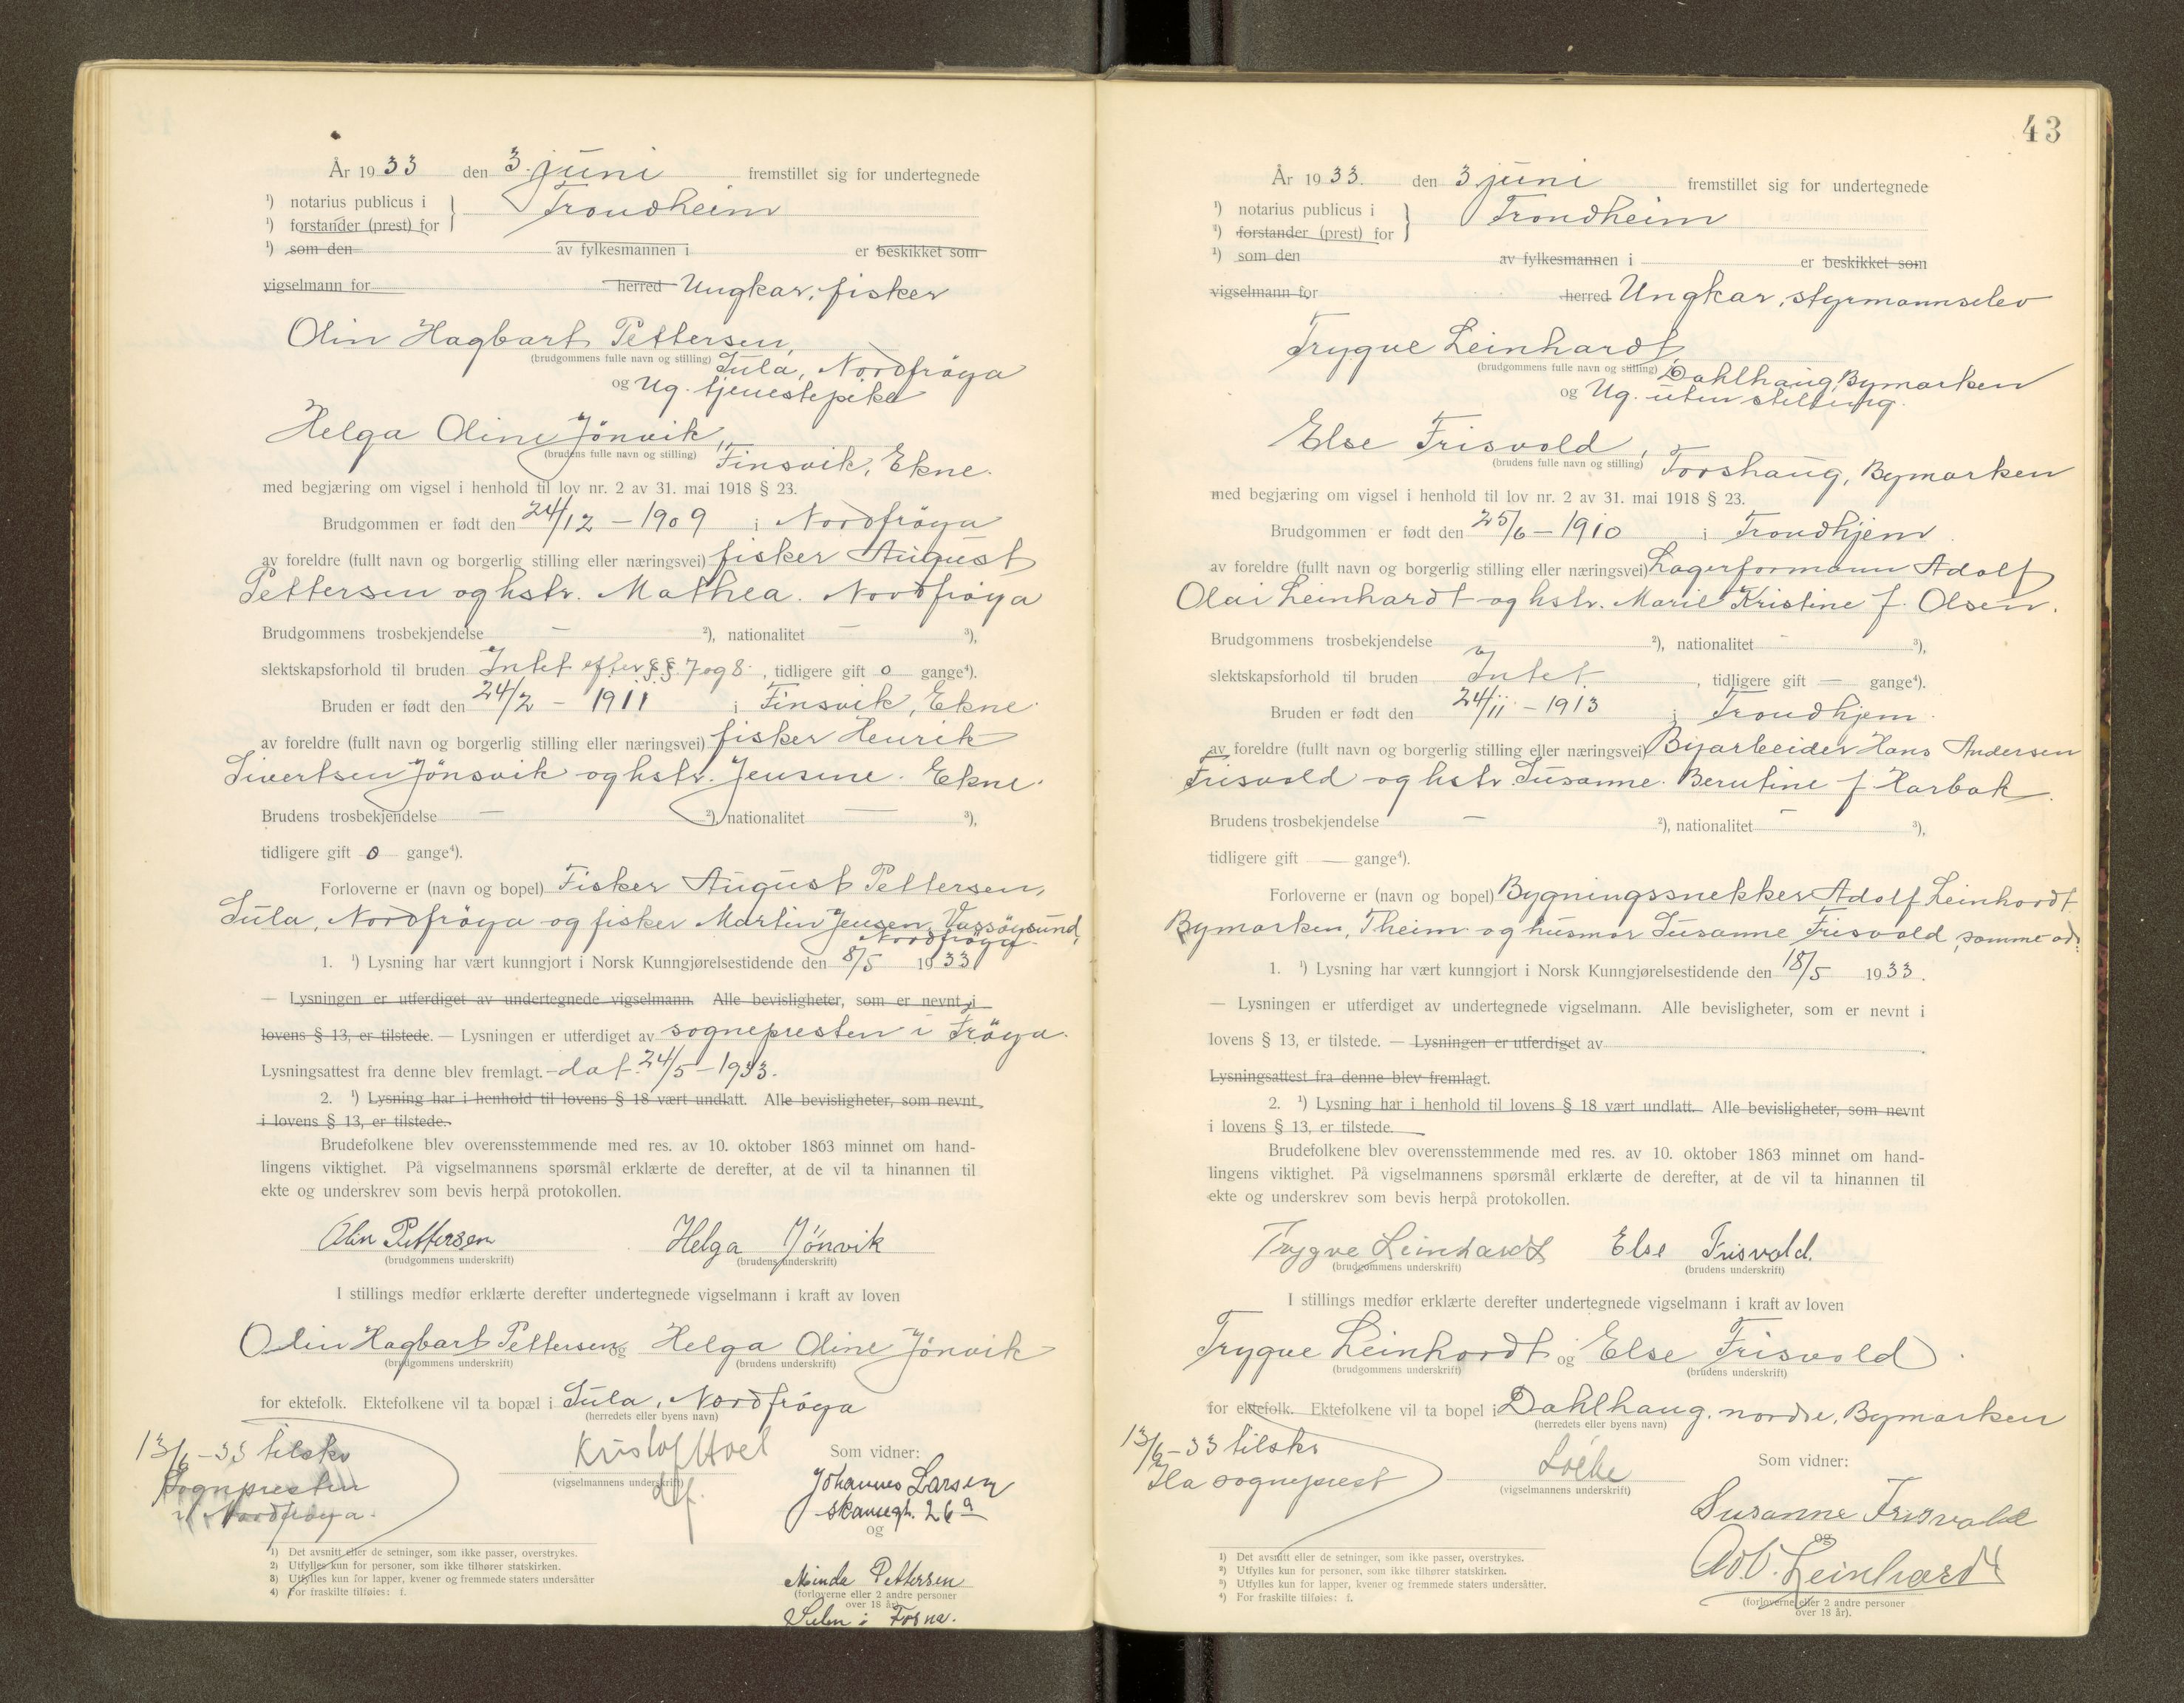 År 1933 den 3. juni fremstillet sig for undertegnede
¹) notarius publicus i
¹) forstander (prest) for } Trondheim
¹) som den av fylkesmannen i er beskikket som
vigselmann for herred Ungkar, fisker
Olin Hagbart Pettersen,
(brudgommens fulle navn og stilling) Sula, Nordfröya
og Ug. tjenestepike
Helga Oline Jönvik,
(brudens fulle navn og stilling) Finsvik, Ekne.
med begjæring om vigsel i henhold til lov nr. 2 av 31. mai 1918 § 23.
Brudgommen er født den 24/12 - 1909 i Nordfröya
av foreldre (fullt navn og borgerlig stilling eller næringsvei) fisker August
Pettersen og hstr. Mathea. Nordfröya
Brudgommens trosbekjendelse — ²), nationalitet — ³),
slektskapsforhold til bruden Intet efter §§ 7 og 8, tidligere gift 0 gange⁴).
Bruden er født den 24/2 - 1911 i Finsvik, Ekne.
av foreldre (fullt navn og borgerlig stilling eller næringsvei) fisker Henrik
Sivertsen Jönsvik og hstr. Jensine. Ekne.
Brudens trosbekjendelse — ²), nationalitet — ³),
tidligere gift 0 gange⁴).
Forloverne er (navn og bopel) Fisker August Pettersen,
Sula, Nordfröya og fisker Martin Jensen, Vassöysund,
Nordfröya.
1. ¹) Lysning har vært kunngjort i Norsk Kunngjørelsestidende den 8/5 1933
— Lysningen er utferdiget av undertegnede vigselmann. Alle bevisligheter, som er nevnt i
lovens § 13, er tilstede. — Lysningen er utferdiget av sognepresten i Fröya.
Lysningsattest fra denne blev fremlagt. - dat. 24/5 - 1933.
2. ¹) Lysning har i henhold til lovens § 18 vært undlatt. Alle bevisligheter, som nevnt
i lovens § 13, er tilstede.
Brudefolkene blev overensstemmende med res. av 10. oktober 1863 minnet om hand-
lingens viktighet. På vigselmannens spørsmål erklærte de derefter, at de vil ta hinannen til
ekte og underskrev som bevis herpå protokollen.
Olin Pettersen Helga Jönvik
(brudgommens underskrift) (brudens underskrift)
I stillings medfør erklærte derefter undertegnede vigselmann i kraft av loven
Olin Hagbart Pettersen og Helga Oline Jönvik
(brudgommens underskrift) (brudens underskrift)
for ektefolk. Ektefolkene vil ta bopæl i Sula, Nordfröya
(herredets eller byens navn)
13/6 - 33 tilskr
Sognpresten
i Nordfröya.
Kristof Hoel
(vigselmannens underskrift)
Som vidner:
Johannes Larsen
26a
og
Minda Pettersen
(forloverne eller 2 andre personer
over 18 år).
1) Det avsnitt eller de setninger, som ikke passer, overstrykes.
2) Utfylles kun for personer, som ikke tilhører statskirken.
3) Utfylles kun for lapper, kvener og fremmede staters undersåtter
4) For fraskilte tilføies: f.
43
År 1933. den 3 juni fremstillet sig for undertegnede
¹) notarius publicus i
¹) forstander (prest) for } Trondheim
¹) som den av fylkesmannen i er beskikket som
vigselmann for herred Ungkar, styrmannselev
Trygve Leinhardt,
(brudgommens fulle navn og stilling) Dahlhaug, Bymarken
og Ug. uten stilling.
Else Frisvold,
(brudens fulle navn og stilling) Torshaug, Bymarken
med begjæring om vigsel i henhold til lov nr. 2 av 31. mai 1918 § 23.
Brudgommen er født den 25/6 - 1910 i Trondhjem.
av foreldre (fullt navn og borgerlig stilling eller næringsvei) Lagerformann Adolf
Olai Leinhardt og hstr. Marie Kristine f. Olsen.
Brudgommens trosbekjendelse ²), nationalitet - ³),
slektskapsforhold til bruden Intet, tidligere gift — gange⁴).
Bruden er født den 24/11 - 1913 i Trondhjem.
av foreldre (fullt navn og borgerlig stilling eller næringsvei) Byarbeider Hans Andersen
Frisvold og hstr. Susanne Berntine f Harbak.
Brudens trosbekjendelse — ²), nationalitet - ³),
tidligere gift — gange⁴).
Forloverne er (navn og bopel) Bygningssnekker Adolf Leinhardt
Bymarken, Theim og husmor Susanne Frisvold, samme ad:
1. ¹) Lysning har vært kunngjort i Norsk Kunngjørelsestidende den 18/5 1933.
— Lysningen er utferdiget av undertegnede vigselmann. Alle bevisligheter, som er nevnt i
lovens § 13, er tilstede. — Lysningen er utferdiget av
Lysningsattest fra denne blev fremlagt.
2. ¹) Lysning har i henhold til lovens § 18 vært undlatt. Alle bevisligheter, som nevnt
i lovens § 13, er tilstede.
Brudefolkene blev overensstemmende med res. av 10. oktober 1863 minnet om hand-
lingens viktighet. På vigselmannens spørsmål erklærte de derefter, at de vil ta hinannen til
ekte og underskrev som bevis herpå protokollen.
Trygve Leinhardt Else Frisvold.
(brudgommens underskrift) (brudens underskrift)
I stillings medfør erklærte derefter undertegnede vigselmann i kraft av loven
Trygve Leinhardt og Else Frisvold
(brudgommens underskrift) (brudens underskrift)
for ektefolk. Ektefolkene vil ta bopel i Dahlhaug, nordre, Bymarken
(herredets eller byens navn)
13/6 - 33 tilskr
Ila sogneprest
(vigselmannens underskrift)
Som vidner:
Susanne Frisvold
og
Ad. O. Leinhardt
(forloverne eller 2 andre personer
over 18 år).
¹) Det avsnitt eller de setninger, som ikke passer, overstrykes.
²) Utfylles kun for personer, som ikke tilhører statskirken.
³) Utfylles kun for lapper, kvener og fremmede staters undersåtter.
⁴) For fraskilte tilføies: f.